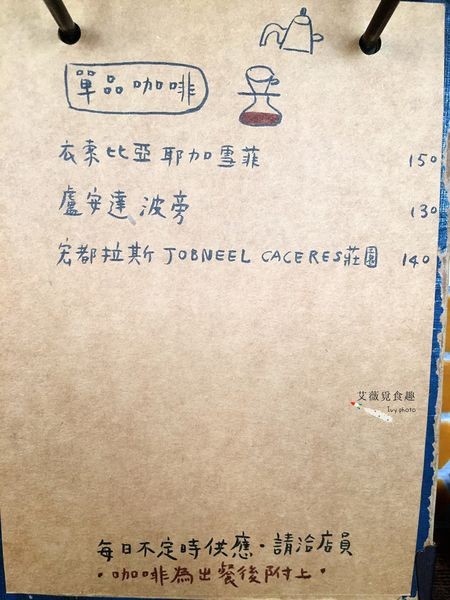 單品咖啡
衣索比亞 耶加雪菲 150
盧安達 波旁 130
宏都拉斯 JOBNEEL CACERES莊園 140
艾薇覓食趣
Ivy photo
每日不定時供應。請洽店員
・咖啡為出餐後附上・